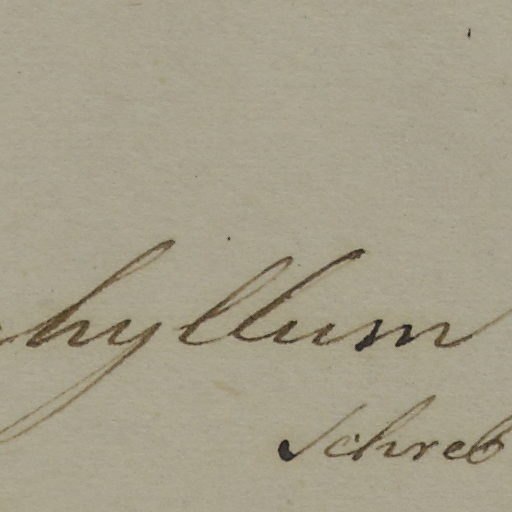 hyllum
Schreb